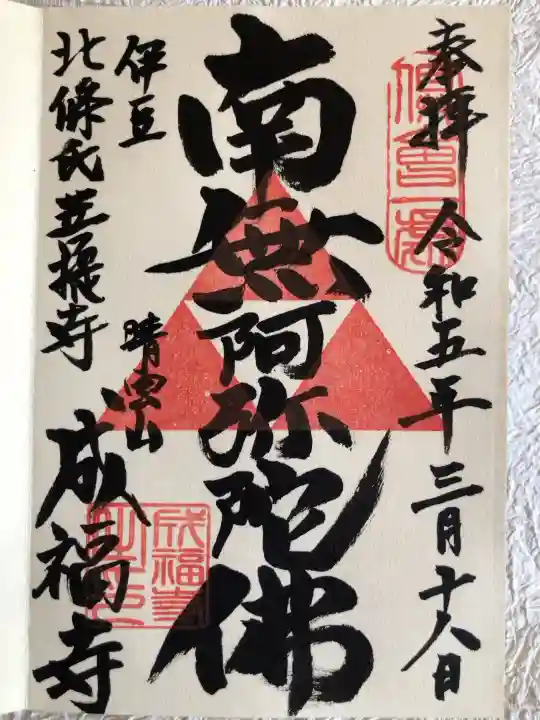 奉拝
令和五年三月十八日
俱會一處
南無阿弥陀佛
伊豆
北條氏菩提寺
晴雲山
成福寺
成福寺